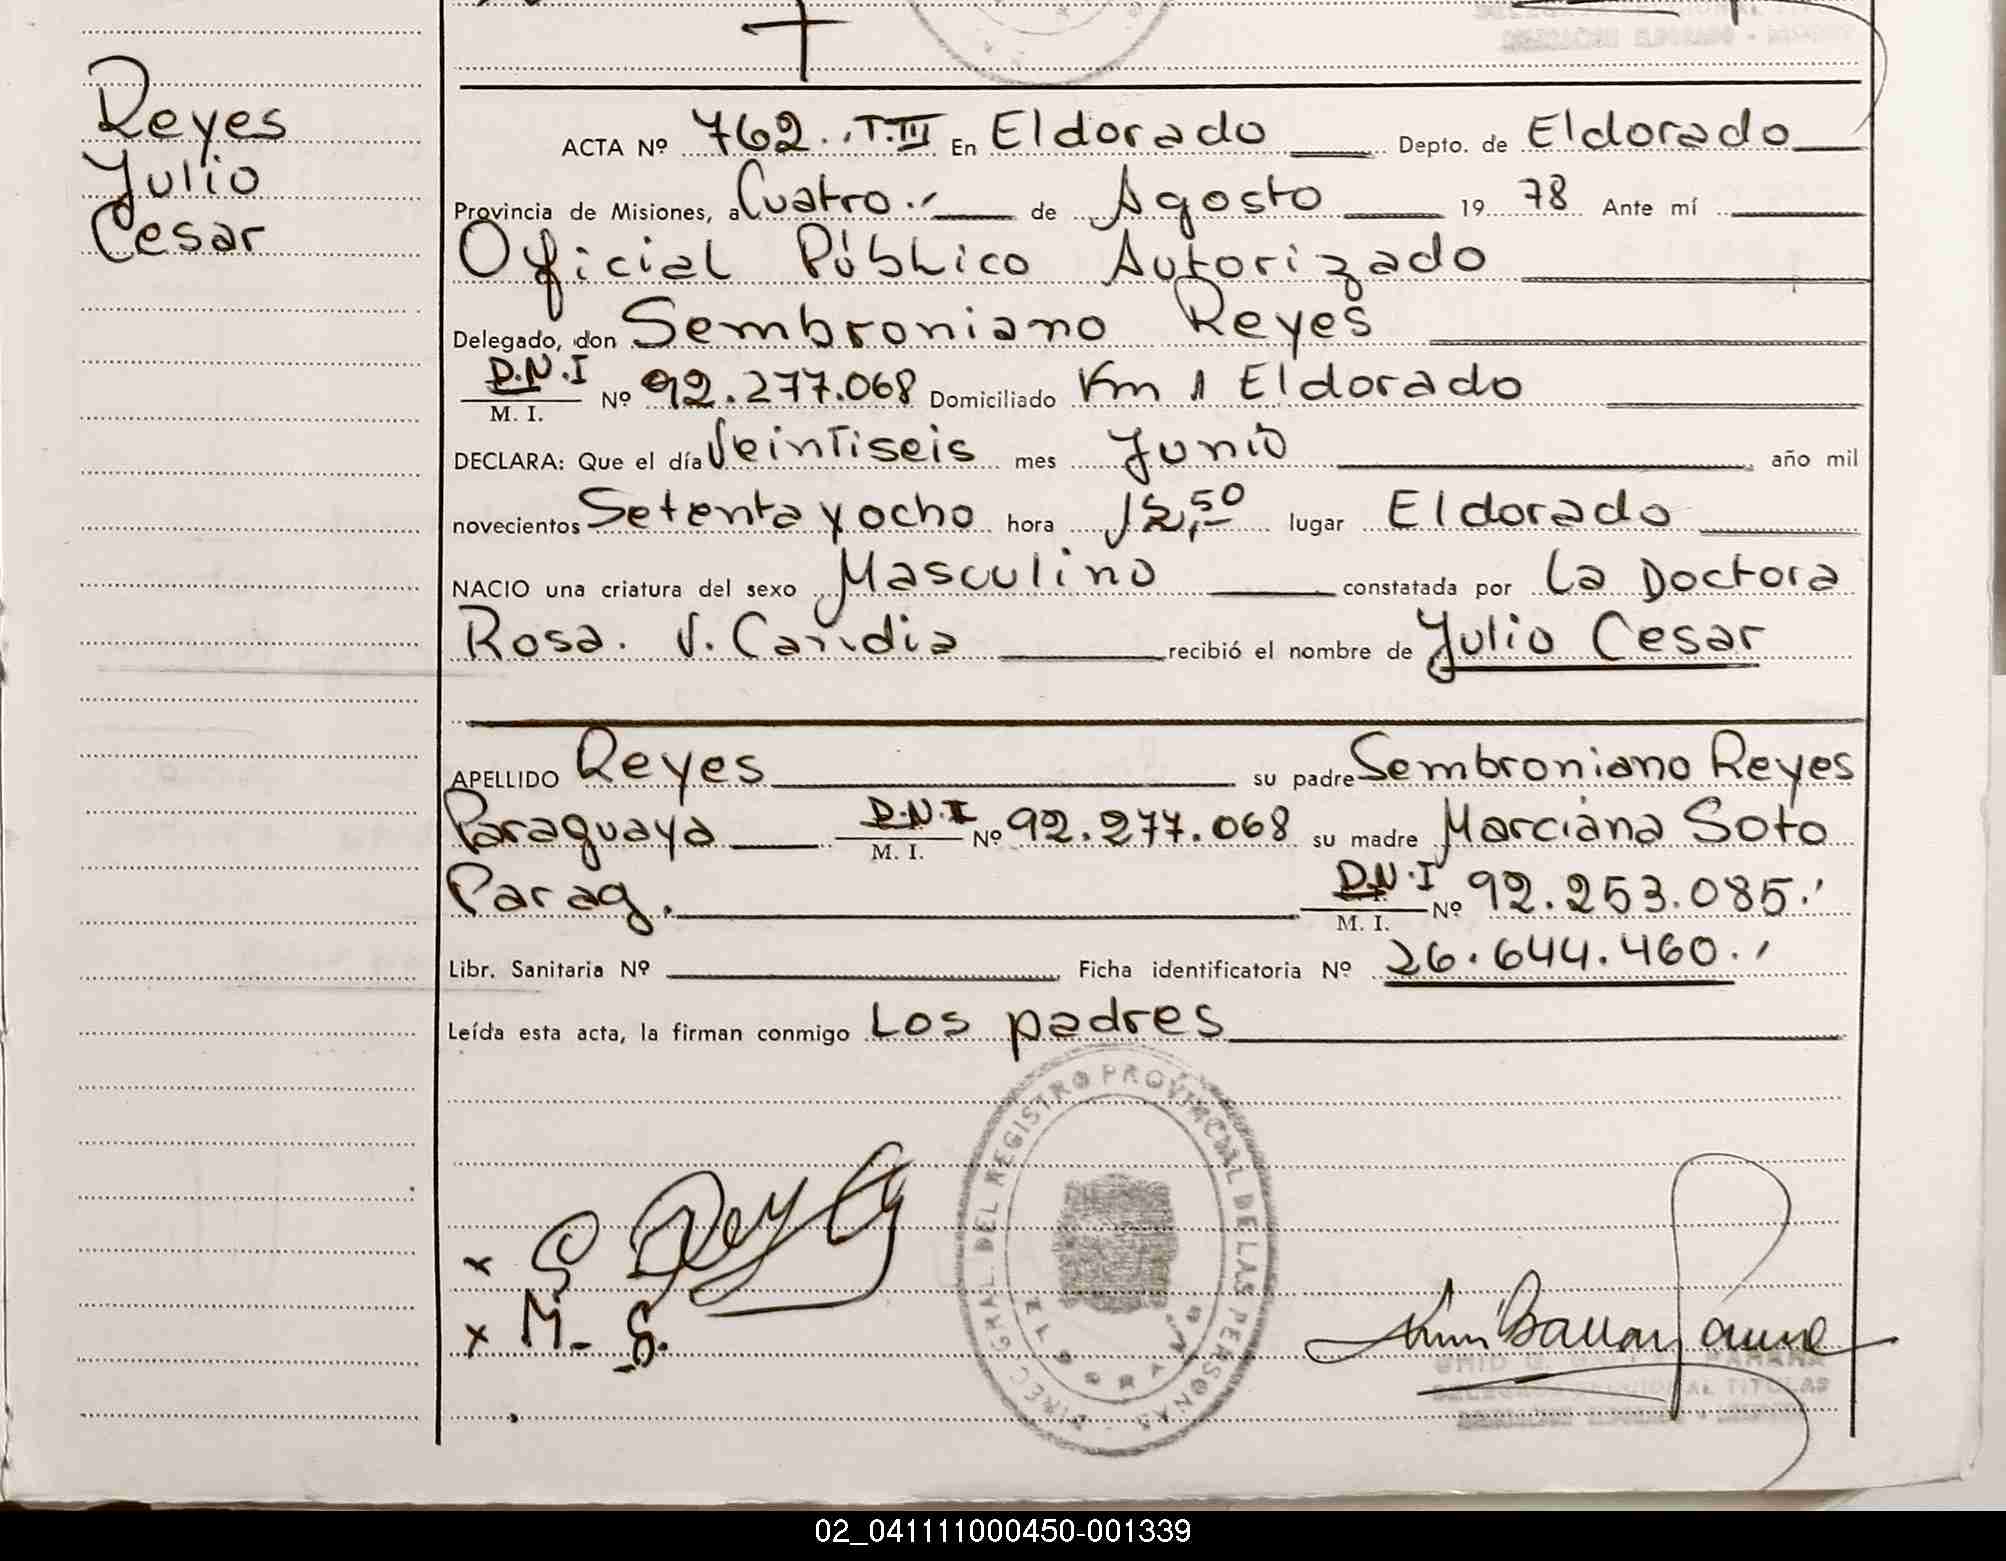 Reyes
Julio
Cesar
ACTA Nº 762 T.III En Eldorado Depto. de Eldorado
Provincia de Misiones, a Cuatro de Agosto 19 78 Ante mí
Oficial Público Autorizado
Delegado, don Sembroniano Reyes
D.N.I
M. I. Nº 92.277.068 Domiciliado Km 1 Eldorado
DECLARA: Que el día Veintiseis mes Junio año mil
novecientos Setenta y ocho hora 12,50 lugar Eldorado
NACIO una criatura del sexo Masculino constatada por La Doctora
Rosa. V. Candia recibió el nombre de Julio Cesar
APELLIDO Reyes su padre Sembroniano Reyes
Paraguaya D.N.I M. I. Nº 92.277.068 su madre Marciana Soto
Parag. D.N.I M. I. Nº 92.253.085.
Libr. Sanitaria Nº Ficha identificatoria Nº 26.644.460.
Leída esta acta, la firman conmigo Los padres
DIREC. GRAL. DEL REGISTRO PROVINCIAL DE LAS PERSONAS
x S Reyes
x M- S.
02_041111000450-001339